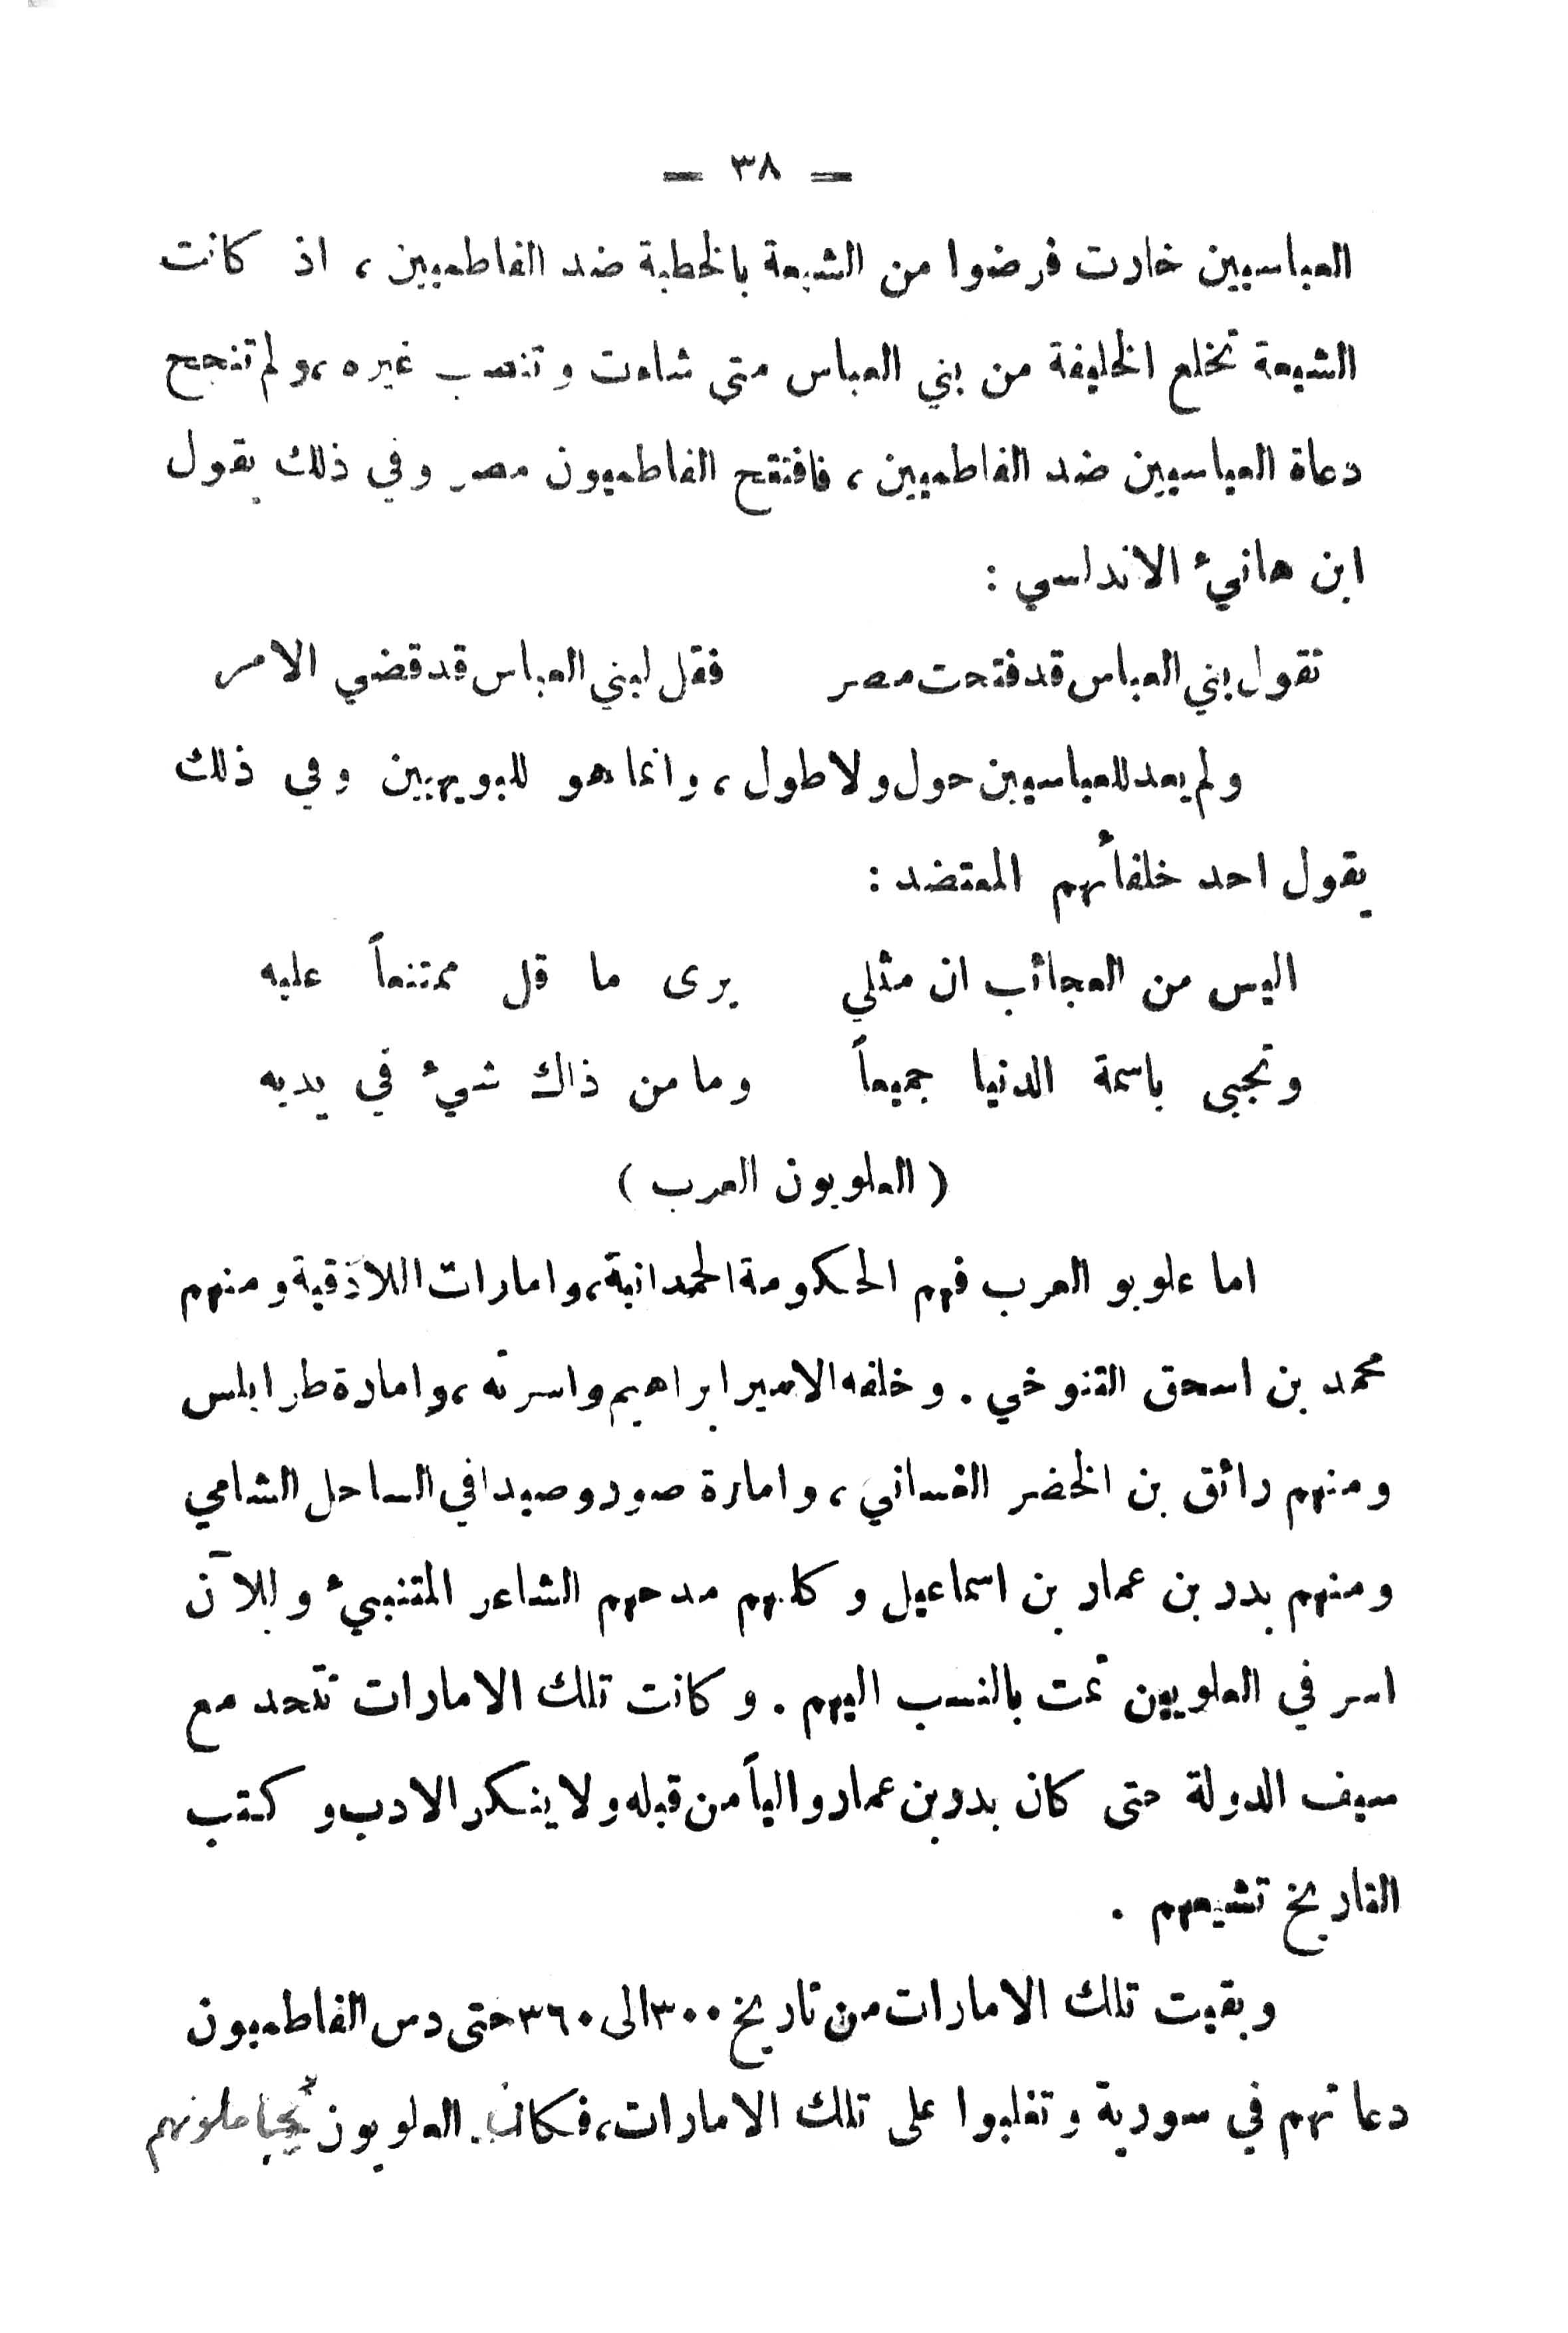 — ٣٨ —
العباسيين خارت فرضوا من الشيعة بالخطبة ضد الفاطميين ، اذ كانت
الشيعة تخلع الخليفة من بني العباس متى شاءت وتنصب غيره ، ولم تنجح
دعاة العباسيين ضد الفاطميين ، فافتتح الفاطميون مصر وفي ذلك يقول
ابن هانيء الاندلسي :
تقول بني العباس قد فتحت مصر فقل لبني العباس قد قضي الامر
ولم يعد للعباسيين حول ولا طول ، وانما هو للبويهيين وفي ذلك
يقول احد خلفائهم المعتضد :
اليس من العجائب ان مثلي يرى ما قل ممتنعاً عليه
وتجبى باسمة الدنيا جميعاً وما من ذاك شيء في يديه
( العلويون العرب )
اما علويو العرب فهم الحكومة الحمدانية ، وامارات اللاذقية ومنهم
محمد بن اسحق التنوخي . وخلفه الامير ابراهيم واسرته ، وامارة طرابلس
ومنهم رائق بن الخضر الغساني ، وامارة صور وصيدا في الساحل الشامي
ومنهم بدر بن عمار بن اسماعيل وكلهم مدحهم الشاعر المتنبيء وللآن
اسر في العلويين تمت بالنسب اليهم . وكانت تلك الامارات تتحد مع
سيف الدولة حتى كان بدر بن عمار والياً من قبله ولا ينكر الادب وكتب
التاريخ تشيعهم .
وبقيت تلك الامارات من تاريخ ٣٠٠ الى ٣٦٠ حتى دس الفاطميون
دعاتهم في سورية وتغلبوا على تلك الامارات ، فكان العلويون يجاملونهم